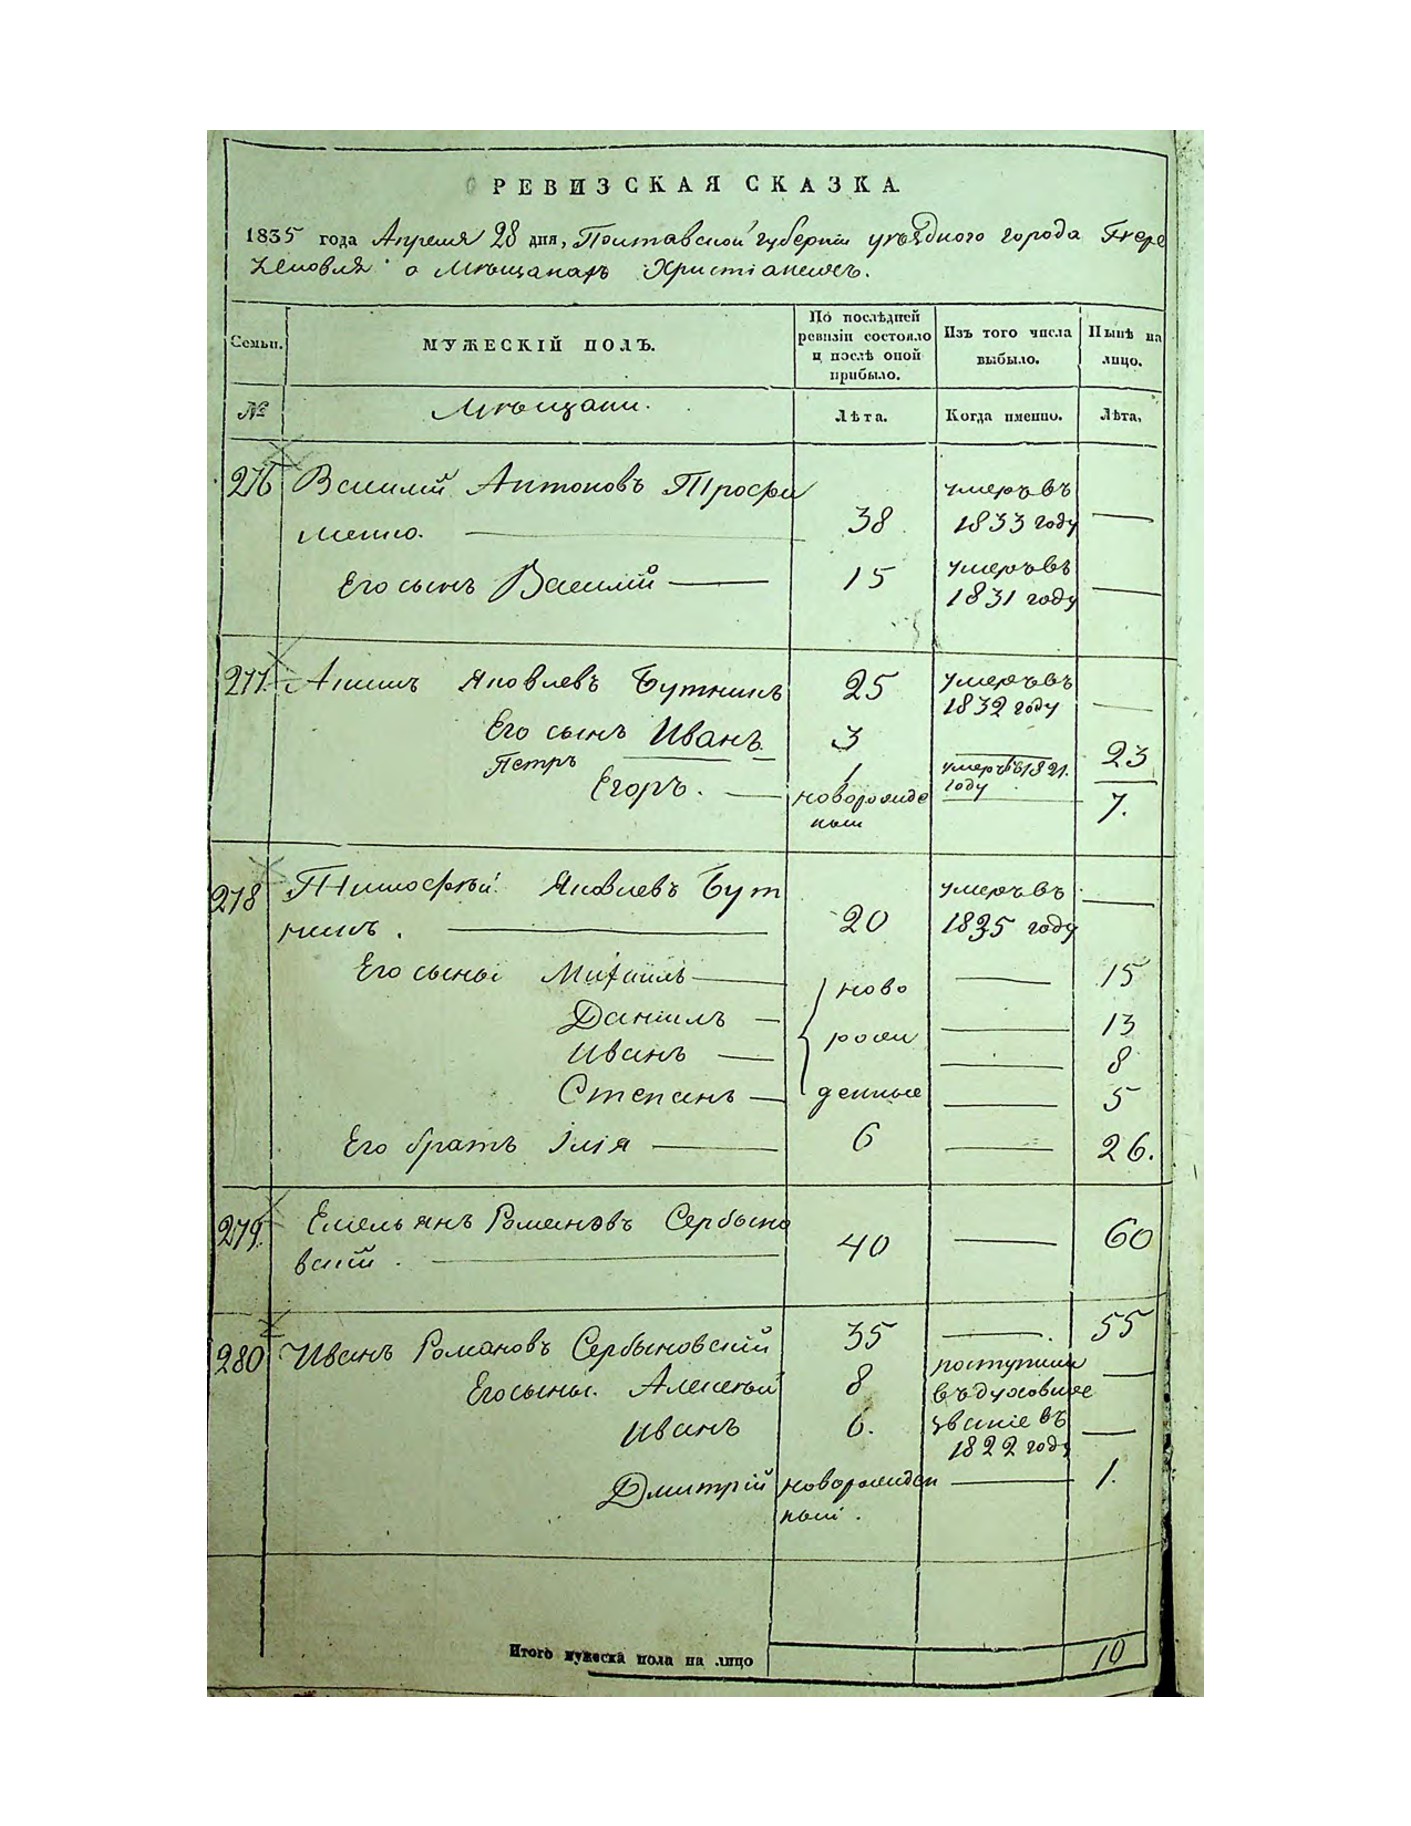 РЕВИЗСКАЯ СКАЗКА.
1835 года Апреля 28 дня, Полтавской губерніи уѣзднаго города Пере
яславля о Мѣщанахъ Христіанехъ.
Семьи.
МУЖЕСКІЙ ПОЛЪ.
По послѣдней
ревизіи состояло
и послѣ оной
прибыло.
Изъ того числа
выбыло.
Нынѣ на
лицо.
№
Мѣщани.
Лѣта.
Когда именно.
Лѣта.
276 Василій Антоновъ Трофи
менко. 38 умеръ въ 1833 году
Его сынъ Василій 15 умеръ въ 1831 году
277. Яковлевъ Бутникъ 25 умеръ въ 1832 году
Его сынъ Иванъ 3 23
Петръ 1 умеръ въ 1821. году
Егоръ. новорожде
ный 7.
278 Тимофѣй Яковлевъ Бут
никъ. 20 умеръ въ 1835 году
Его сыны Михаилъ 15
ново
Даниилъ 13
рожд
Иванъ 8
Степанъ 5
денные
Его братъ Ілія 6 26.
279. Емельянъ Романовъ Сербино
вскій. 40 60
280 Иванъ Романовъ Сербыновскій 35 55
Его сыны. Алексѣй 8 поступили
въ духовное
Иванъ 6. званіе въ
1822 году
Дмитрій новорожден
ный. 1.
Итого мужеска пола на лицо 10